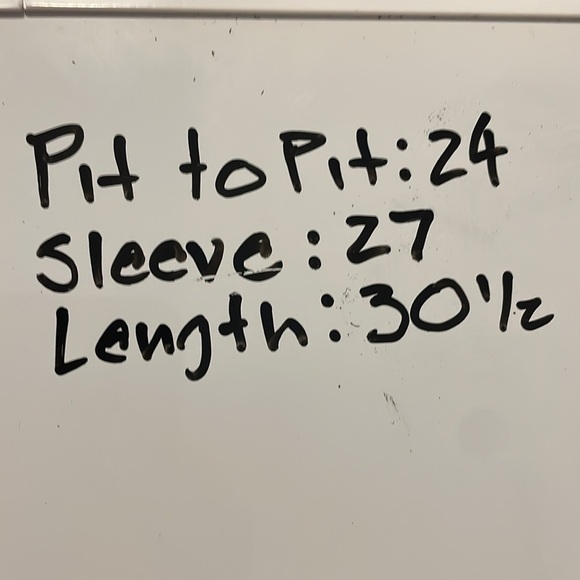 Pit to Pit: 24
Sleeve: 27
Length: 30 1/2